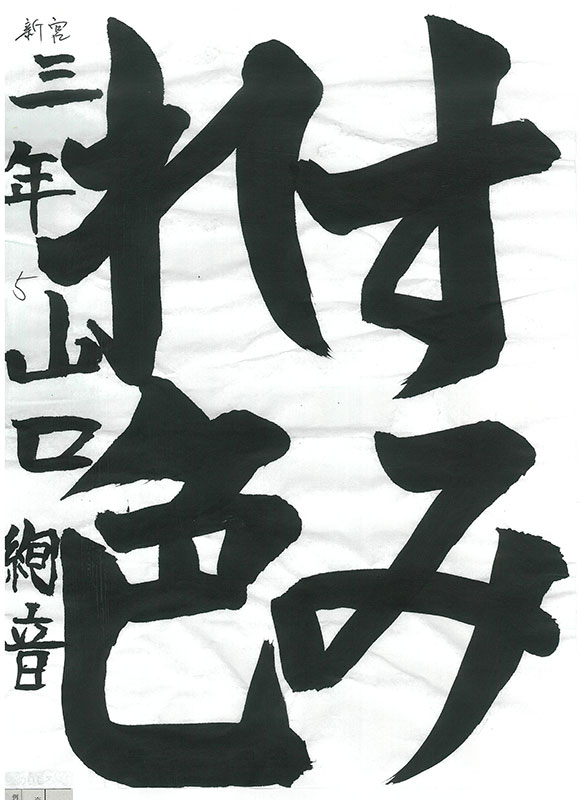 すみ
れ色
新宮
三年山口絢音
5